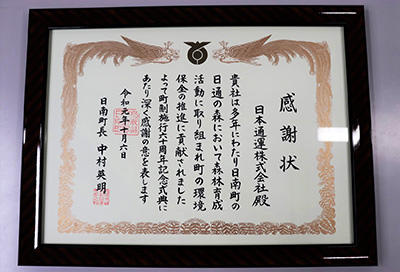 感謝状
日本通運株式会社殿
貴社は多年にわたり日南町の
日通の森において森林育成
活動に取り組まれ町の環境
保全の推進に貢献されました
よって町制施行六十周年記念式典に
あたり深く感謝の意を表します
令和元年十月六日
日南町長 中村英明